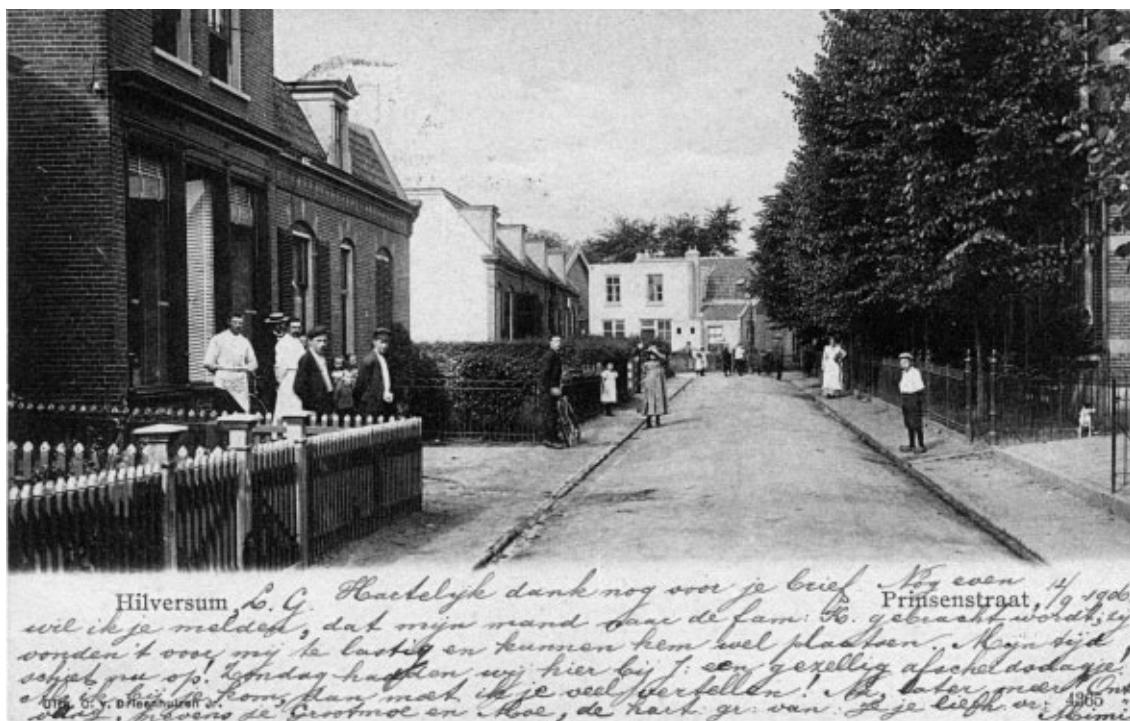 Hilversum, L. G. Hartelijk dank nog voor je brief. Nog even Prinsenstraat, 14/9 1906
wil ik je melden, dat mijn mand naar de fam: K. gebracht wordt; zij
vonden 't voor mij te lastig en kunnen hem wel plaatsen. Mijn tijd
schiet nu op! Zondag hadden wij hier bij J: een gezellig afscheidsdagje
als ik bij je kom, dan moet ik je veel vertellen! Nu, later meer! Ont
vang, nevens je Grootmoe en Moe, de hart: gr: van: je liefh: vr:
Uitg. C. v. Driesenhuizen Jr. 4365